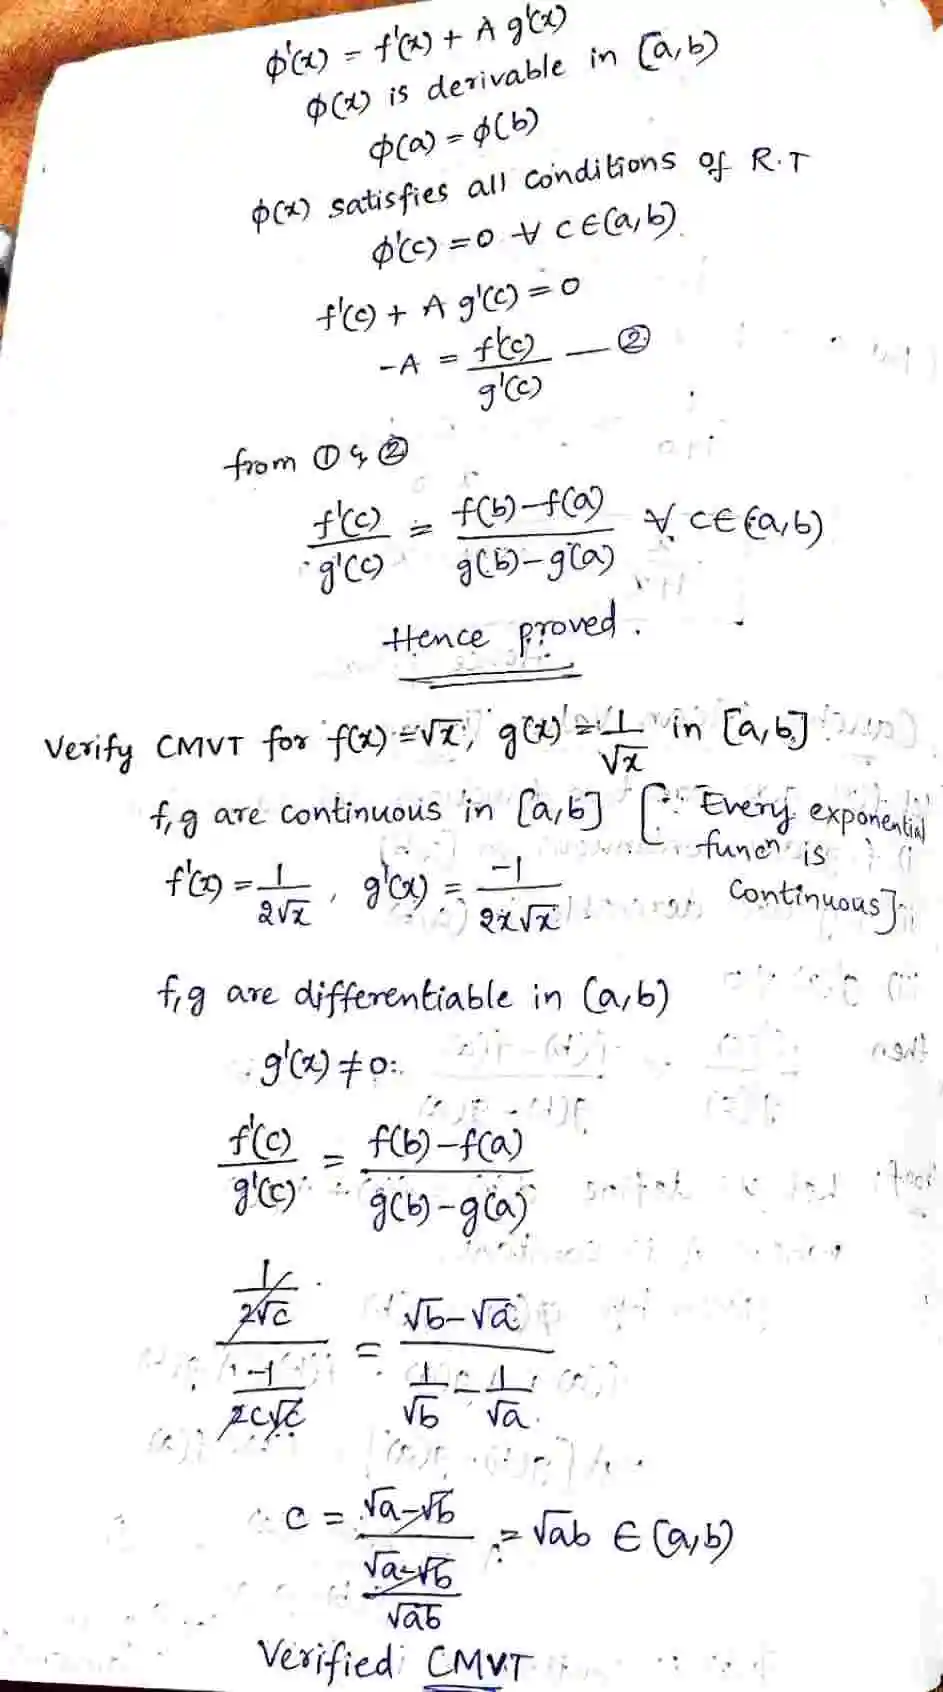 ϕ'(x) = f'(x) + A g'(x)
ϕ(x) is derivable in (a,b)
ϕ(a) = ϕ(b)
ϕ(x) satisfies all conditions of R.T
ϕ'(c) = 0 ∀ c∈(a,b).
f'(c) + A g'(c) = 0
-A = f'(c)/g'(c) — ②
from ① & ②
f'(c)/g'(c) = (f(b)-f(a))/(g(b)-g(a)) ∀ c∈(a,b)
Hence proved.
Verify CMVT for f(x) = √x, g(x) = 1/√x in [a,b]
f,g are continuous in [a,b] [∵ Every exponential
funcn is
continuous]
f'(x) = 1/(2√x), g'(x) = -1/(2x√x)
f,g are differentiable in (a,b)
g'(x) ≠ 0
f'(c)/g'(c) = (f(b)-f(a))/(g(b)-g(a))
(1/(2√c))/(-1/(2c√c)) = (√b-√a)/(1/√b - 1/√a)
c = (√a-√b)/((√a-√b)/√ab) = √ab ∈ (a,b)
Verified CMVT